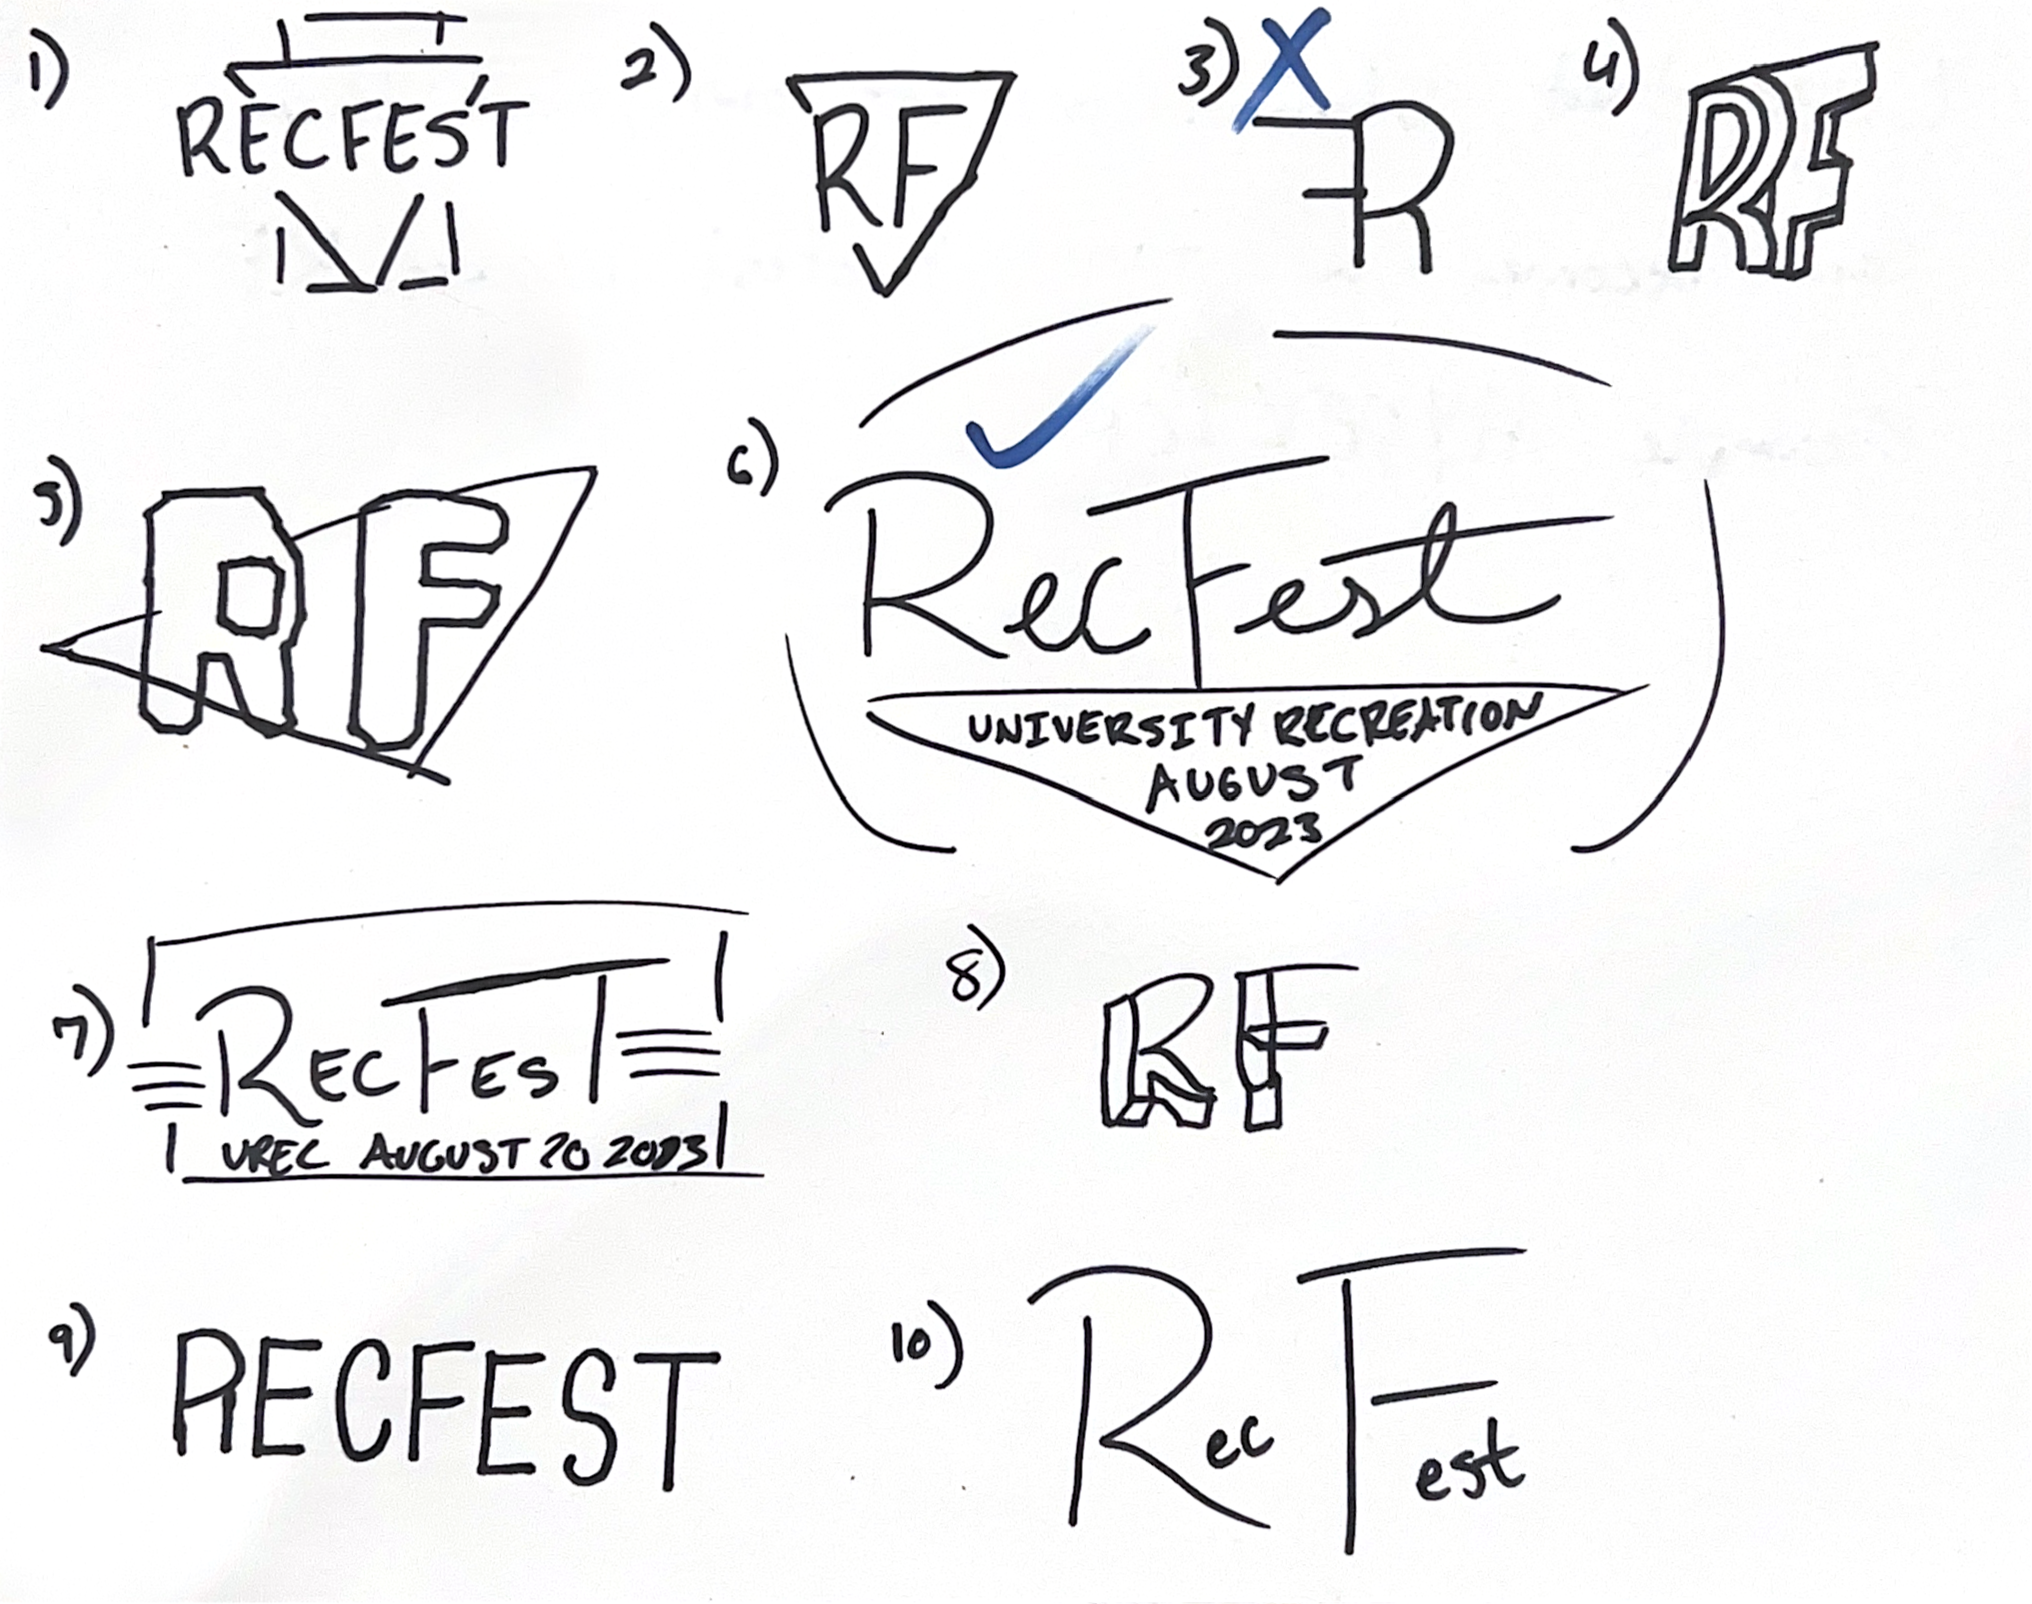 1)
RECFEST
2)
RF
3)
R
4)
RF
5)
RF
6)
RecFest
UNIVERSITY RECREATION
AUGUST
2023
7)
RECFEST
UREC AUGUST 20 2023
8)
RF
9)
RECFEST
10)
Rec Fest